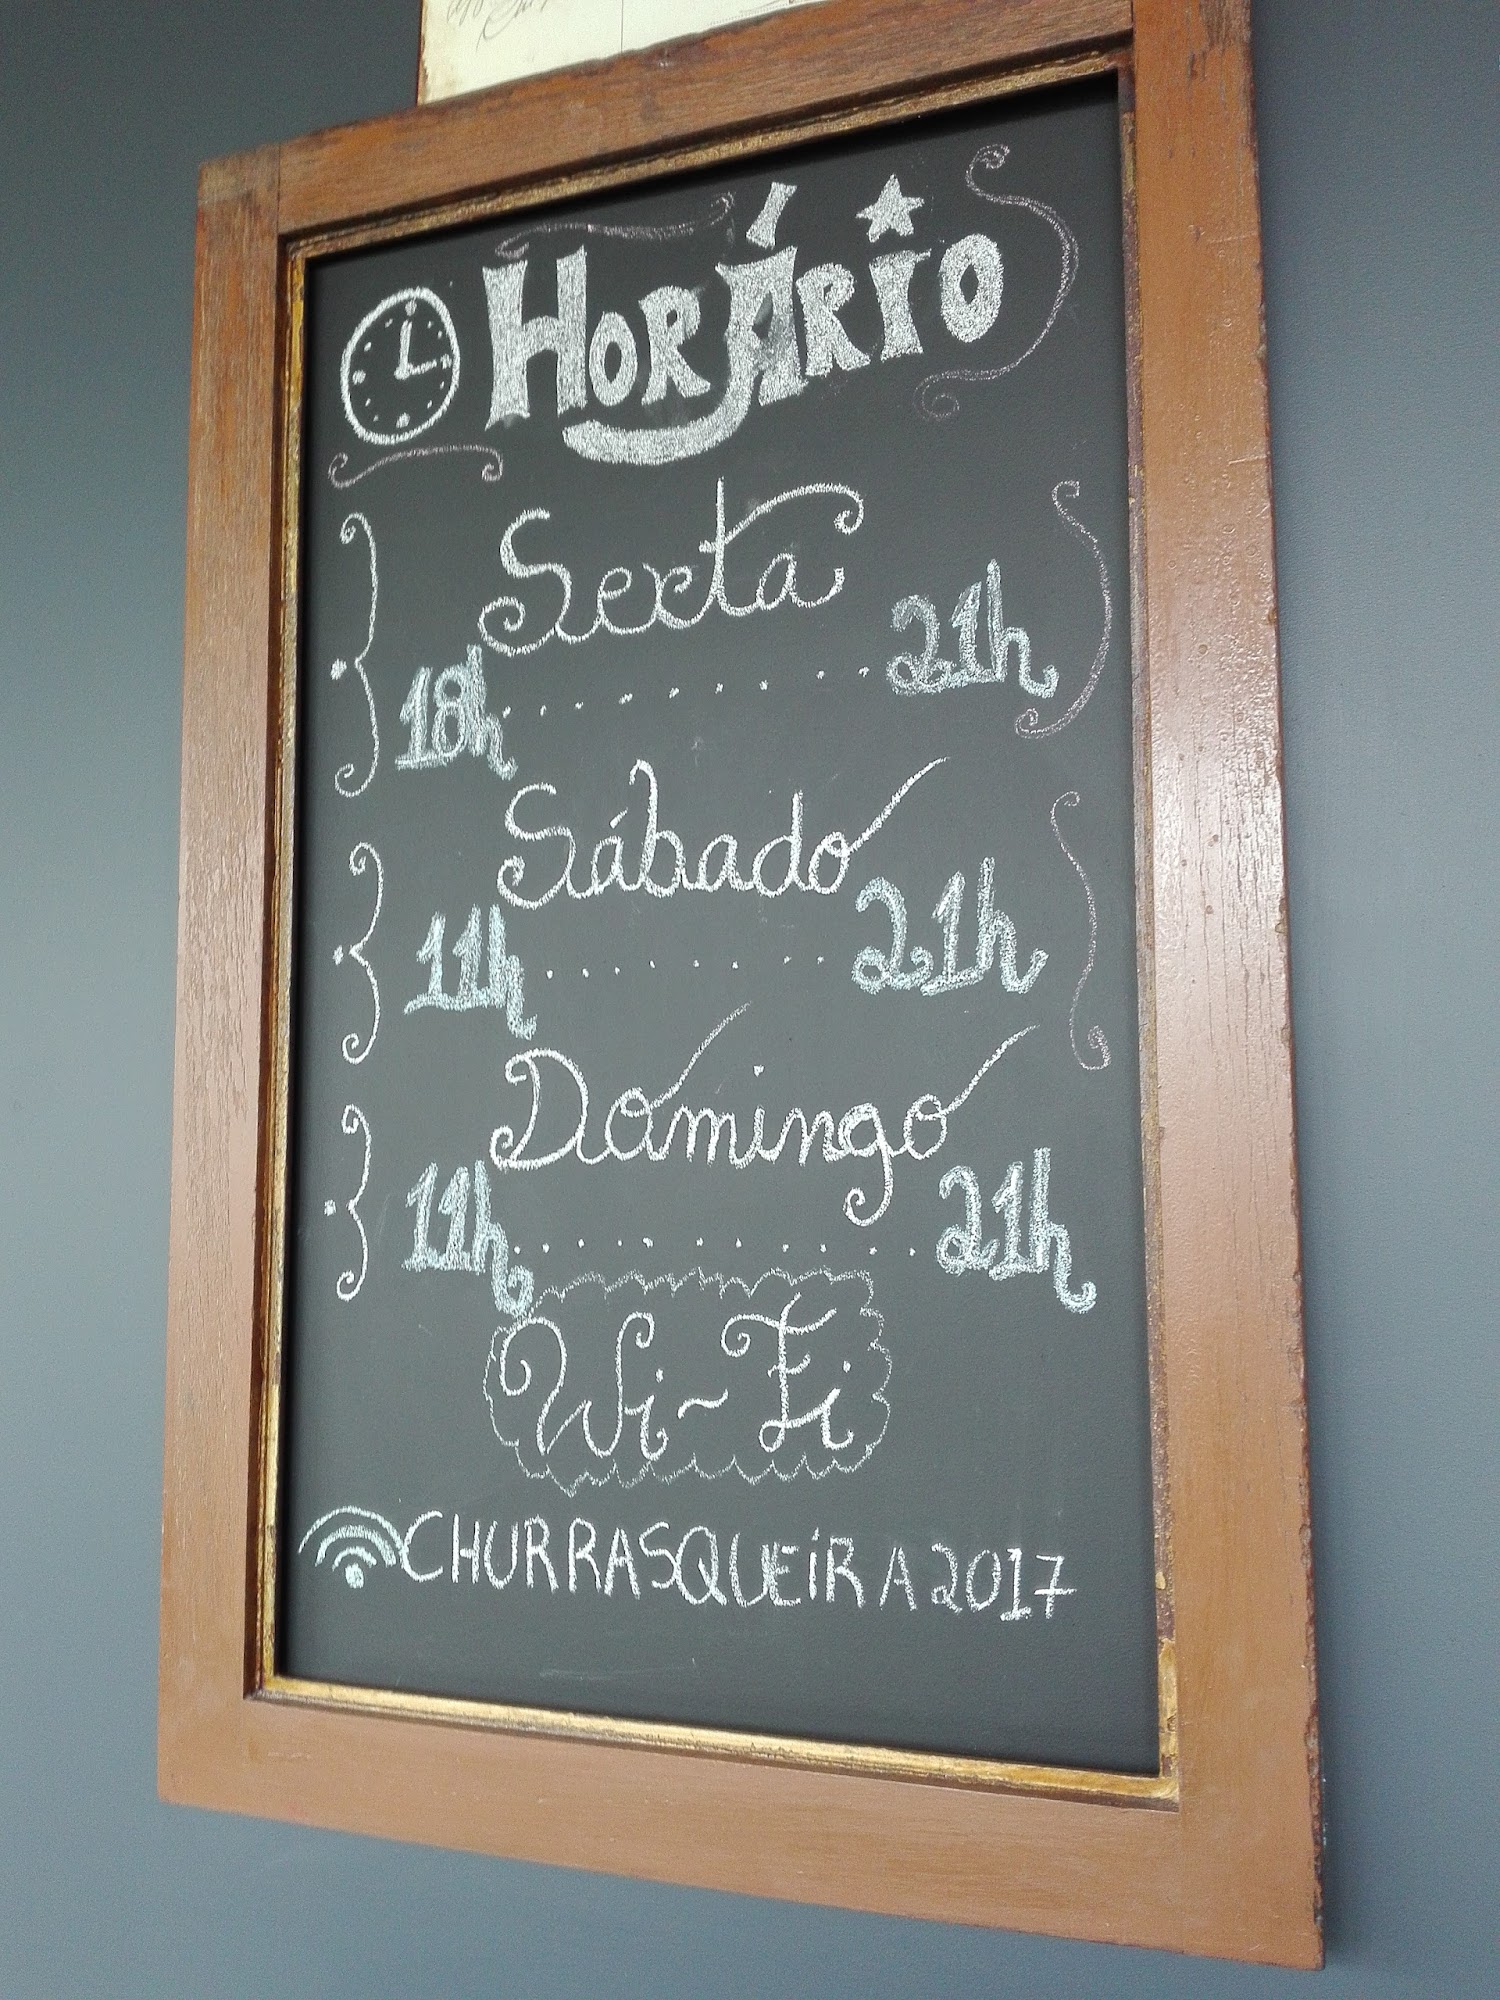 HORÁRIO
Sexta
18h ......... 21h
Sábado
11h ......... 21h
Domingo
11h ........... 21h
Wi-Fi
CHURRASQUEIRA2017